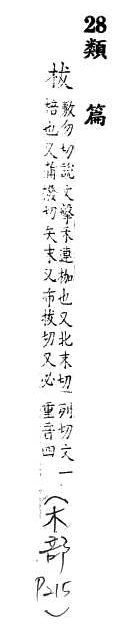 28類 篇
柭
敷勿切說文擊禾連枷也又北末切
棓也又蒲撥切矢末又布拔切又必
列切文一
重音四
(木部
P215)